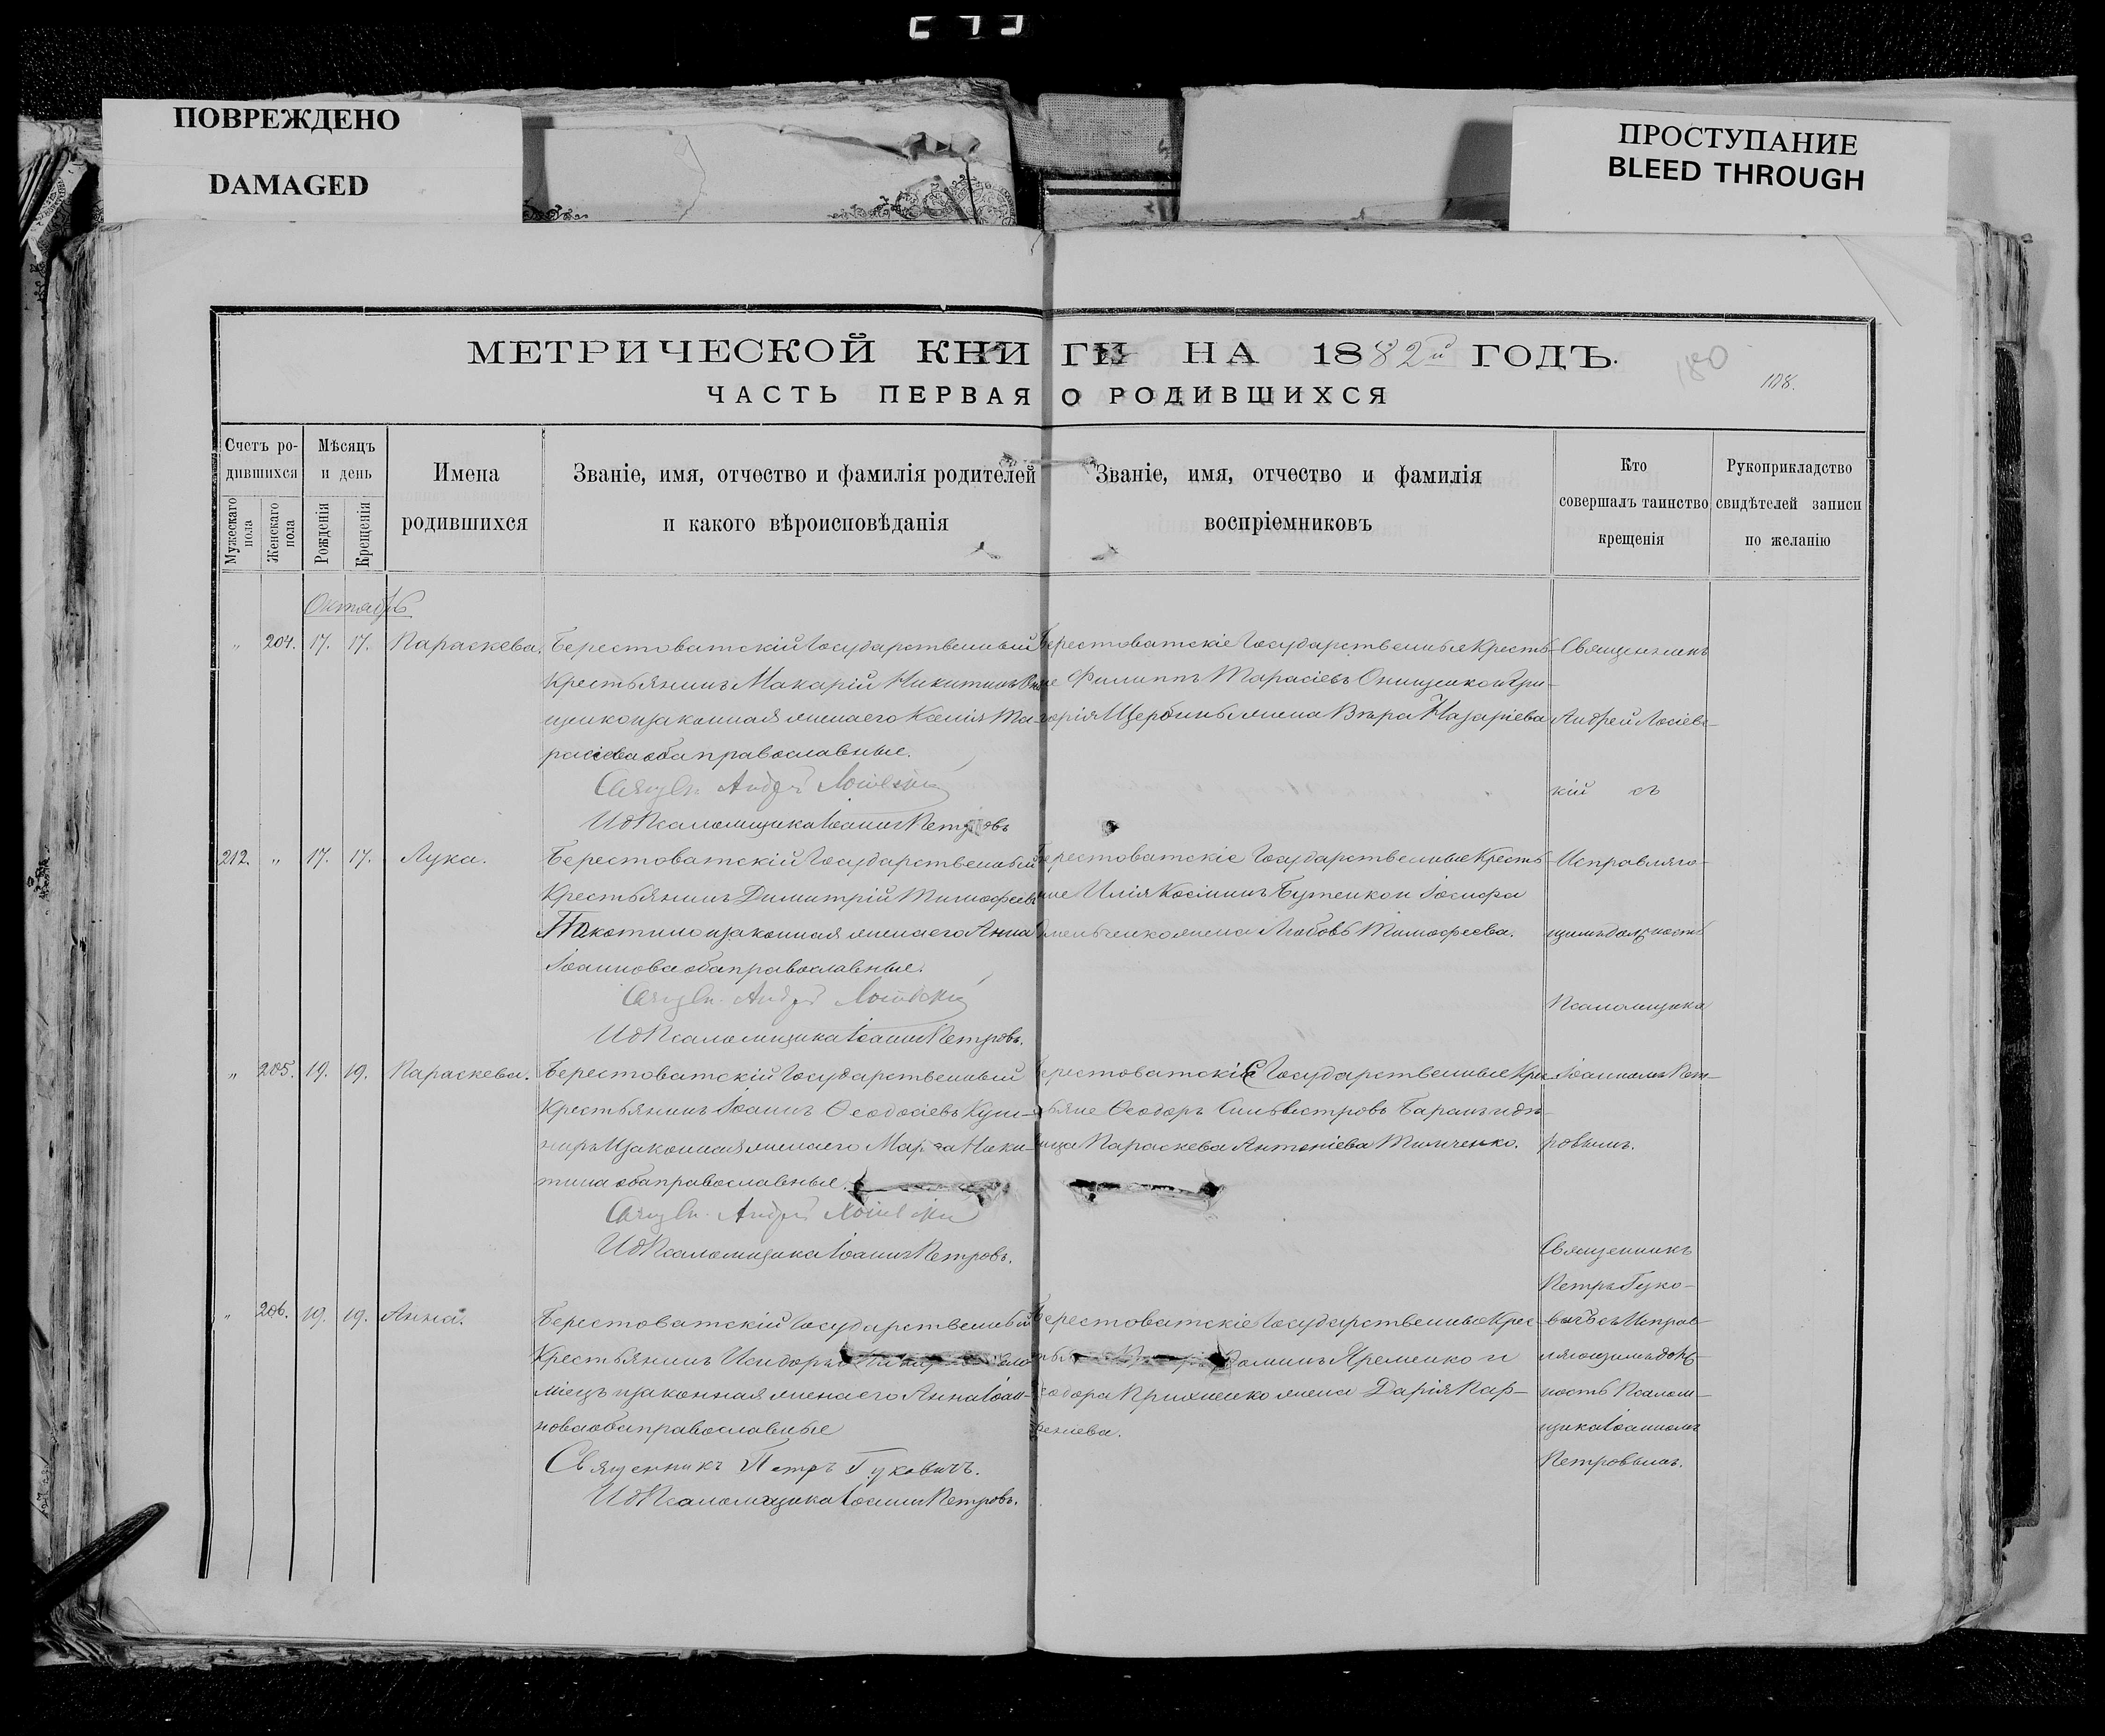 ПОВРЕЖДЕНО
DAMAGED
ПРОСТУПАНИЕ
BLEED THROUGH
МЕТРИЧЕСКОЙ КНИГИ НА 1882й ГОДЪ.
180
108.
ЧАСТЬ ПЕРВАЯ О РОДИВШИХСЯ
Счетъ родившихся
Мужескаго пола
Женскаго пола
Мѣсяцъ и день
Рожденія
Крещенія
Имена родившихся
Званіе, имя, отчество и фамилія родителей
и какого вѣроисповѣданія
Званіе, имя, отчество и фамилія
воспріемниковъ
Кто
совершалъ таинство
крещенія
Рукоприкладство
свидѣтелей записи
по желанію
Октябрь
" 204. 17. 17. Параскева.
Берестоватскій Государственный
Крестьянинъ Макарій Никитинъ Они-
щенко и законная жена его Ксенія Та-
расіева оба православные.
Священ. Андрей Лосіевскій
ИдПсаломщика Іоаннъ Петровъ
Берестоватскіе Государственные Кресть-
яне Филиппъ Тарасіевъ Онищенко и Гри-
горія Щербины жена Вѣра Назаріева
Священникъ
Андрей Лосіевс-
кій съ
212. " 17. 17. Лука.
Берестоватскій Государственный
Крестьянинъ Димитрій Тимофеевъ
Пакотило и законная жена его Анна
Іоаннова оба православные.
Священ. Андрей Лосіевскій
ИдПсаломщика Іоаннъ Петровъ.
Берестоватскіе Государственные Кресть-
яне Илія Косминъ Бутенко и Іосифа
Омельченко жена Любовь Тимофеева.
Исправляю-
щимъ должность
Псаломщика
" 205. 19. 19. Параскева.
Берестоватскій Государственный
Крестьянинъ Іоаннъ Ѳеодосіевъ Куш-
ниръ и законная жена его Марѳа Ники-
тина оба православные.
Священ. Андрей Лосіевскій
ИдПсаломщика Іоаннъ Петровъ.
Берестоватскіе Государственные Крес-
тьяне Ѳеодоръ Сильвестровъ Баранъ и дѣ-
вица Параскева Антоніева Тимченко.
Іоанномъ Пет-
ровымъ.
" 206. 19. 19. Анна.
Берестоватскій Государственный
Крестьянинъ Исидоръ
міецъ и законная жена его Анна Іоан-
нова оба православные
Священникъ Петръ Гуковичъ.
ИдПсаломщика Іоаннъ Петровъ.
Берестоватскіе Государственные Крес-
Яременко и
Ѳеодора Прихненко жена Дарія Пар-
ѳеніева.
Священникъ
Петръ Гуко-
вичъ съ Исправ-
ляющимъ долж-
ность Псалом-
щика Іоанномъ
Петровымъ.